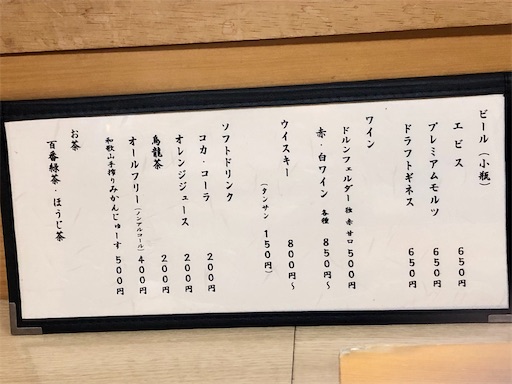 ビール（小瓶）
エビス 650円
プレミアムモルツ 650円
ドラフトギネス 650円
ワイン
ドルンフェルダー 独 赤 甘口 500円
赤・白ワイン 各種 850円～
ウイスキー 800円～
（タンサン 150円）
ソフトドリンク
コカ・コーラ 200円
オレンジジュース 200円
烏龍茶 200円
オールフリー（ノンアルコール） 400円
和歌山手搾りみかんじゅーす 500円
お茶
百番緑茶・ほうじ茶